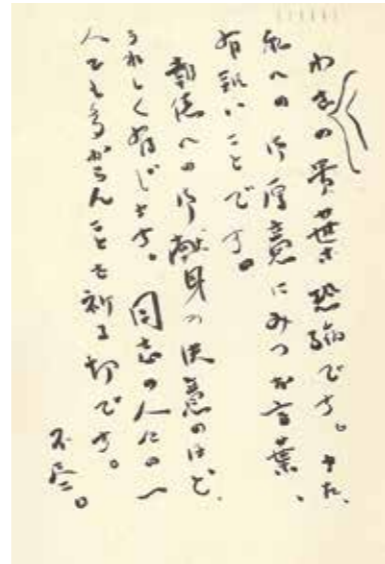 わざの貴葉書恐縮です。また、
私への御厚意にみつお言葉、
有難いことです。
報徳への御献身の決意のほど、
うれしく存じます。同志の人にの一
人でも多からんことを祈る切です。
不尽。